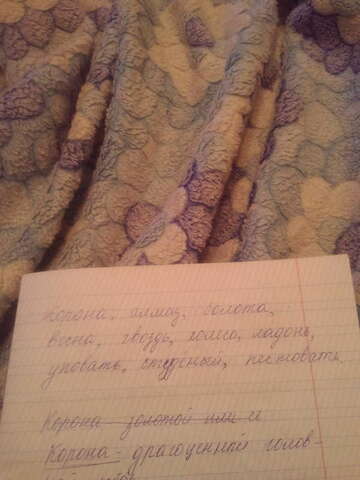 корона, алмаз, болота,
весна, гвоздь, колесо, ладонь,
уповать, студёный, пестовать.
Корона золотой или
Корона - драгоценный голов-